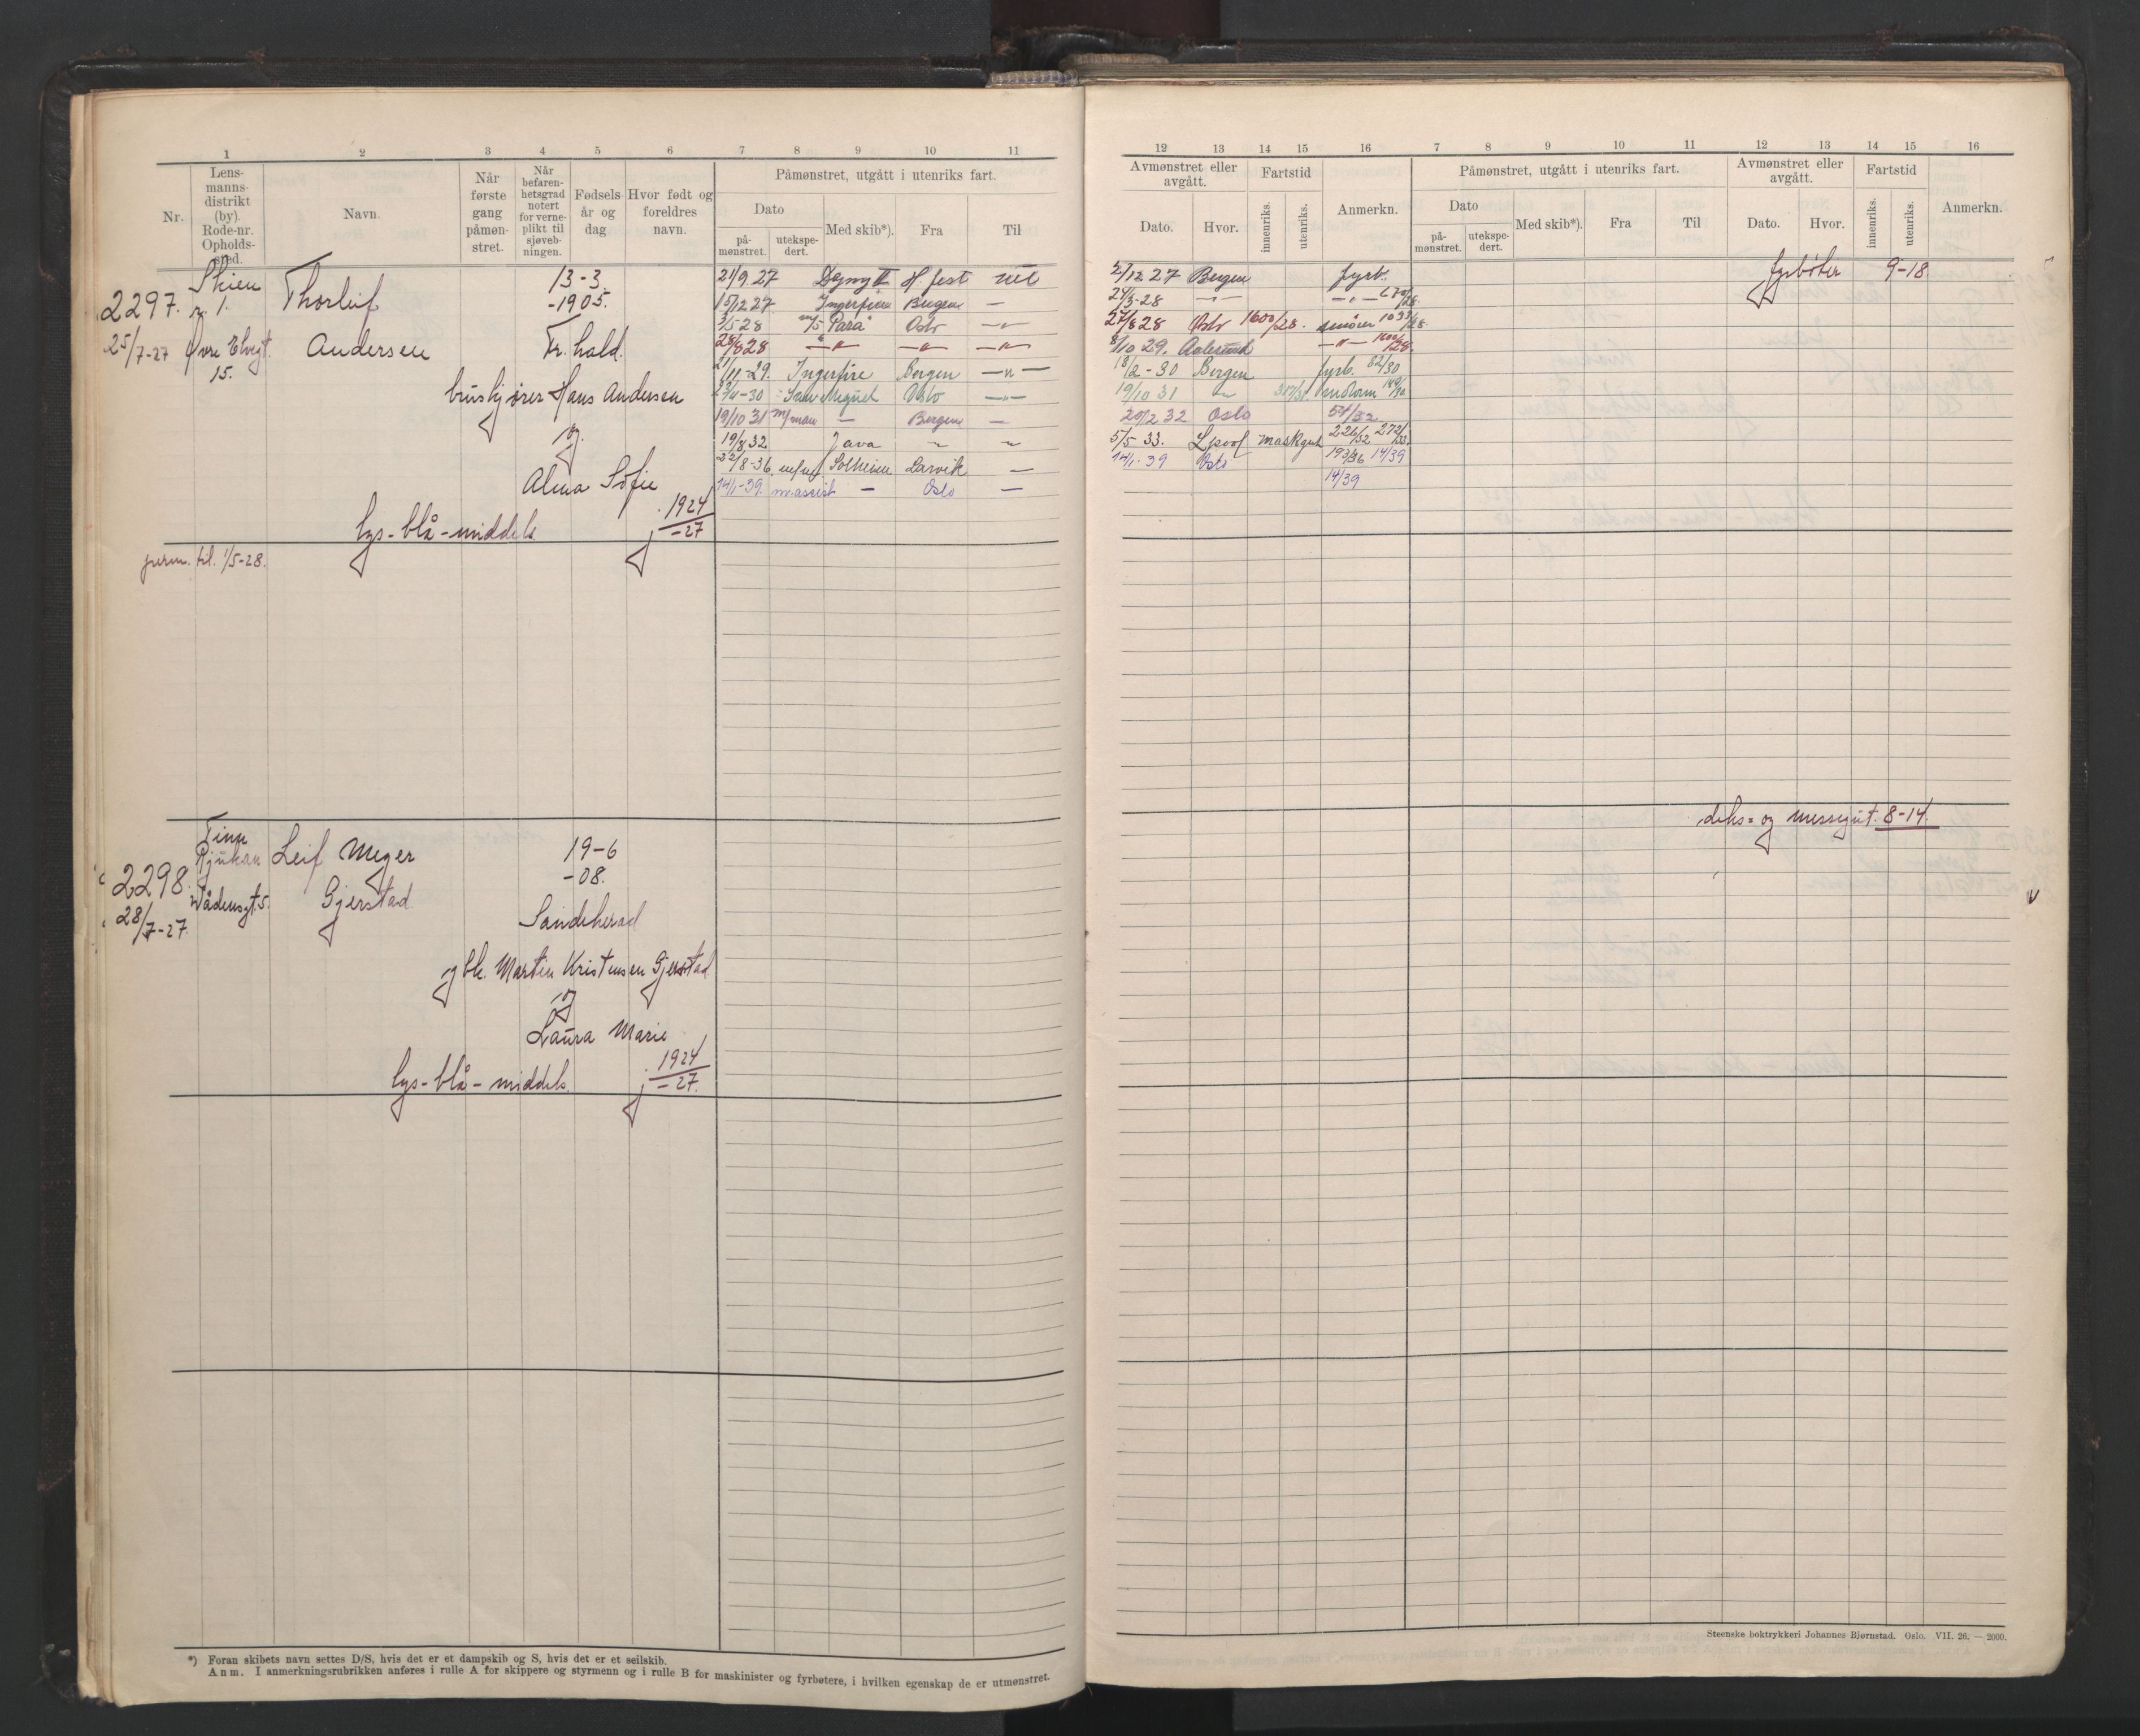 1 2 3 4 5 6 7 8 9 10 11
Nr.
Lens-
manns-
distrikt
(by).
Rode-nr.
Opholds-
sted.
Navn.
Når
første
gang
påmøn-
stret.
Når
befaren-
hetsgrad
notert
for verne-
plikt til
sjøveb-
ningen.
Fødsels
år og
dag
Hvor født og
foreldres
navn.
Påmønstret, utgått i utenriks fart.
Dato
på-
mønstret.
utekspe-
dert.
Med skib*).
Fra
Til
2297.
25/7-27
Skien
r. 1.
Øvre Elvegt.
15.
Thorleif
Andersen
13-3.
-1905.
Fr.hald.
Hans Andersen
og
Alma Sofie
lys-blå-middels
1924
-27
perm. til. 1/5-28.
21/9.27 H.fest
15/12 27 Bergen —
3/5 28 m/s Para Oslo —"—
28/8 28 —"— —"— —"—
21/11-29. Bergen —"—
23/4-30 San Miguel Oslo —"—
19/10 31 — Bergen —
19/8 32 Java
22/8-36 Solheim Larvik —
14/1-39. — Oslo —
2298.
28/7-27.
Tinn
Rjukan
Leif Meyer
Gjerstad
19-6
-08.
Sandeherad
Martin Kristensen Gjerstad
og
Laura Marie
lys-blå-middels.
1924
-27.
*) Foran skibets navn settes D/S, hvis det er et dampskib og S, hvis det er et seilskib.
Anm. I anmerkningsrubrikken anføres i rulle A for skippere og styrmenn og i rulle B for maskinister og fyrbøtere, i hvilken egenskap de er utmønstret.
12 13 14 15 16 7 8 9 10 11 12 13 14 15 16
Avmønstret eller
avgått.
Dato.
Hvor.
Fartstid
innenriks.
utenriks.
Anmerkn.
Påmønstret, utgått i utenriks fart.
Dato
på-
mønstret.
utekspe-
dert.
Med skib*).
Fra
Til
Avmønstret eller
avgått.
Dato.
Hvor.
Fartstid
innenriks.
utenriks.
Anmerkn.
2/12 27 Bergen fyrb.
24/3-28 —"— —"—
27/8 28 Oslo 1600/28.
8/10 29. Aalesund —"— 1600/28.
18/2-30 Bergen fyrb. 82/30
19/10 31
20/2 32 Oslo 54/32
5/5 33. Lpool 226/32 272/33.
14/1-39 Oslo 193/36 14/39
14/39
fyrbøter 9-18
deks= og messegut. 8-14.
Steenske boktrykkeri Johannes Bjørnstad. Oslo. VII. 26. — 2000.